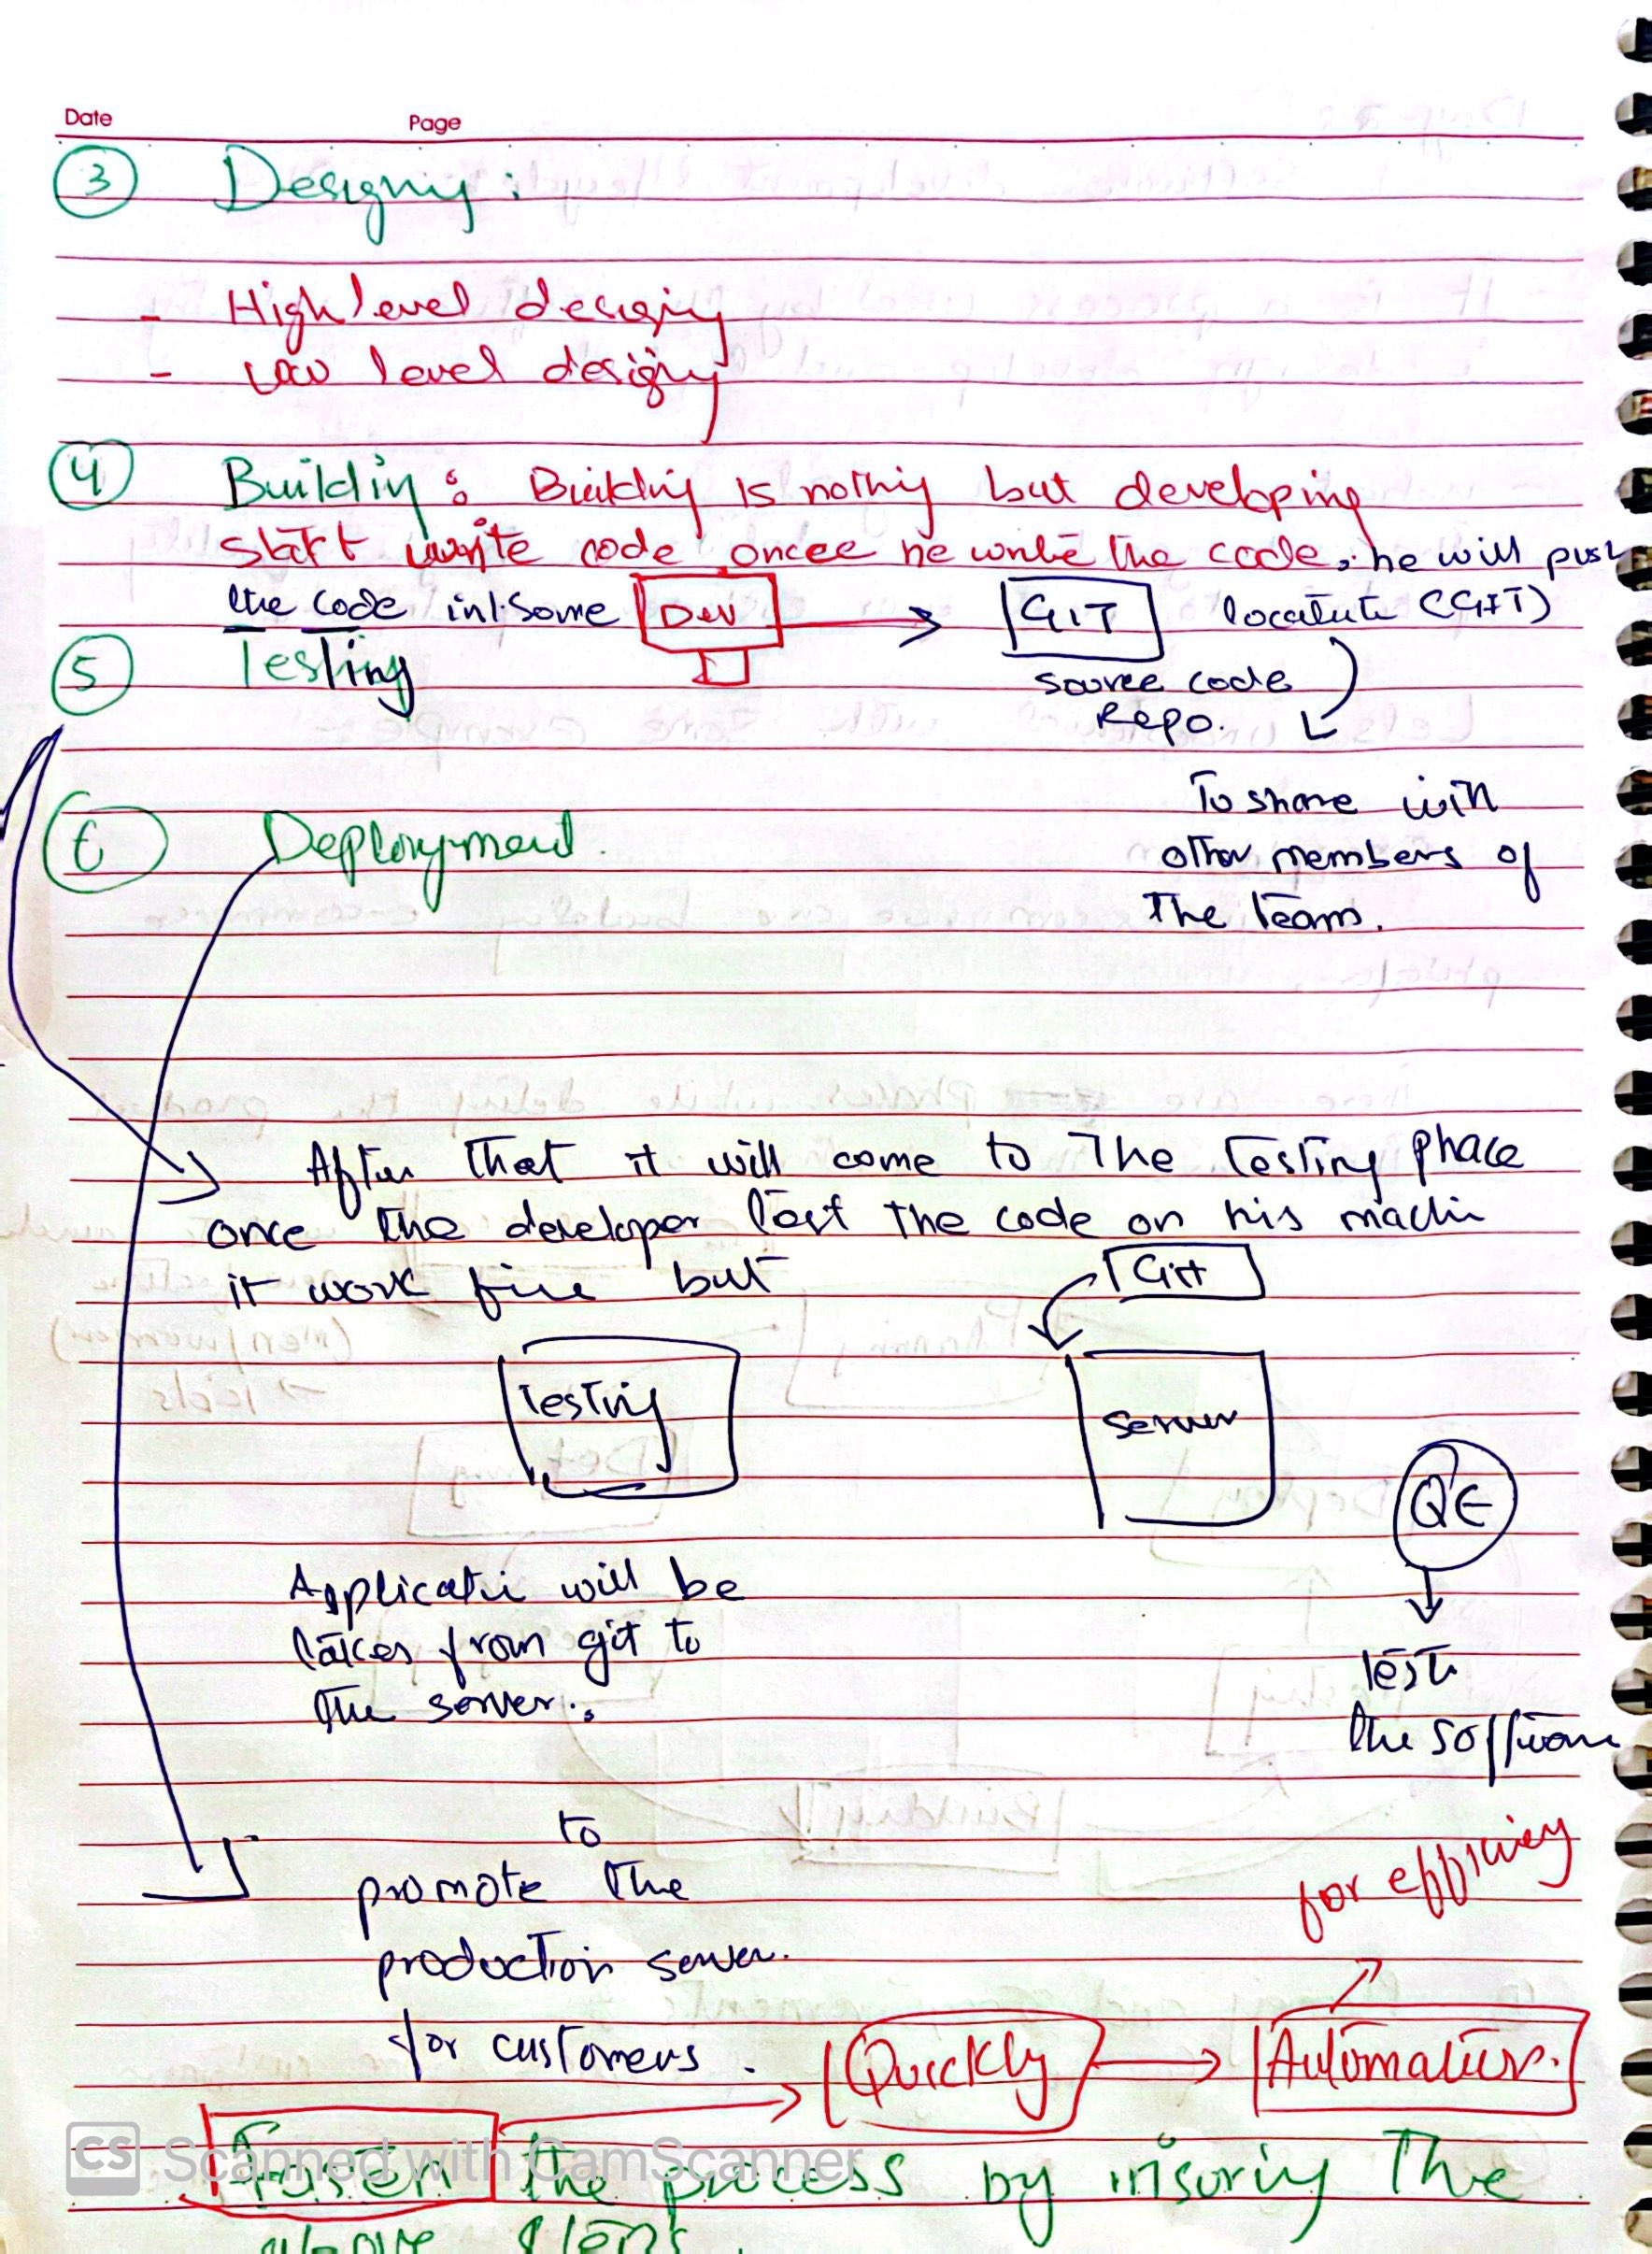 Date Page
3 Designiy :
- High level designiy
- Low level designiy
4 Buildiy : Buildiy is nothiy but developing
start write code oncee he write the code, he will push
the code int some Dev → GIT locatute (GIT)
5 Testing
source code
Repo.
To share with
other members of
the team.
6 Deployment.
After that it will come to the Testing phace
once the developer test the code on his machi
it work fine but
Git
Testing
server
QE
Applicati will be
takes from git to
the server.
test
the software
to
promote the
production server.
for customers.
for efficiey
Quickly → Automation.
Fasten the process by insuriy the
above steps.
CS Scanned with CamScanner